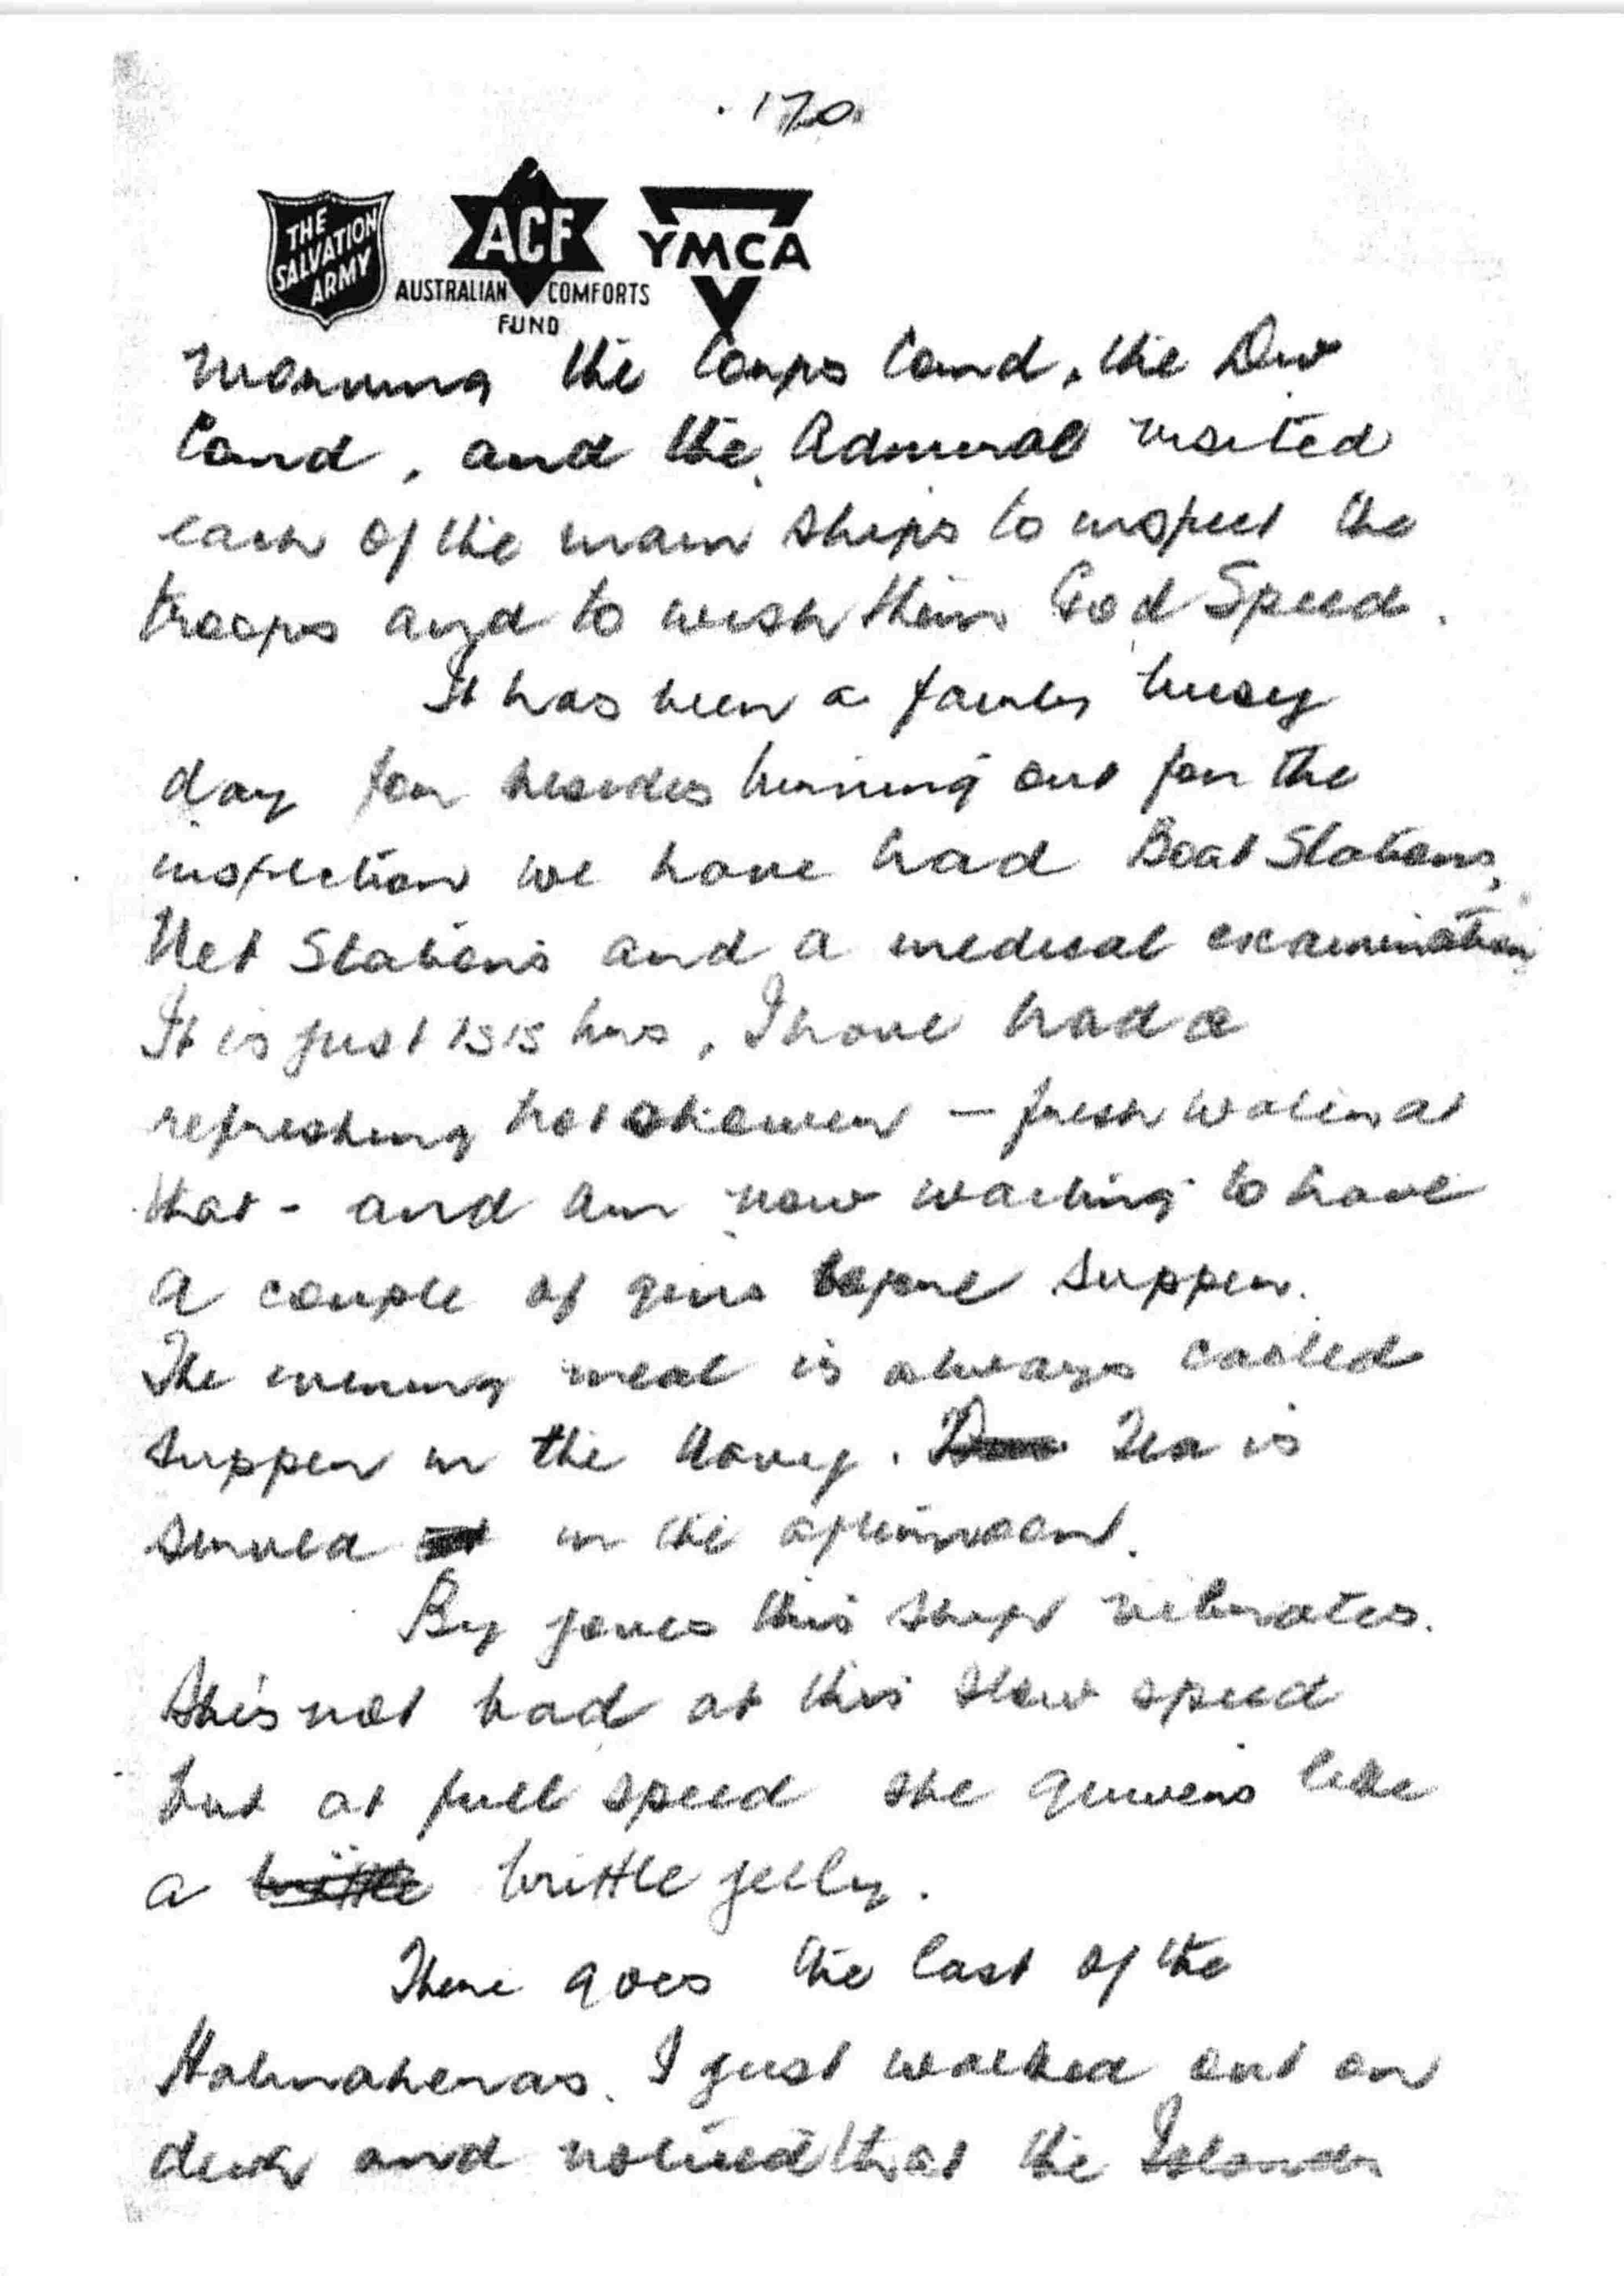 170.
THE SALVATION ARMY
ACF
AUSTRALIAN COMFORTS FUND
YMCA
morning the Corps Comd, the Div
Comd, and the Admiral visited
each of the main ships to inspect the
troops and to wish them God Speed.
It has been a fairly busy
day for besides turning out for the
inspection we have had Boat Stations,
Net Stations and a medical examination
It is just 1515 hrs, I have had a
refreshing hot shower – fresh water at
that - and am now waiting to have
a couple of gins before supper.
The evening meal is always called
supper in the Navy. Tea is
served in the afternoon.
By joves this ship vibrates.
She's not bad at this slow speed
but at full speed she quivers like
a brittle brittle jelly.
There goes the last of the
Halmaheras. I just walked out on
deck and noticed that the Islands